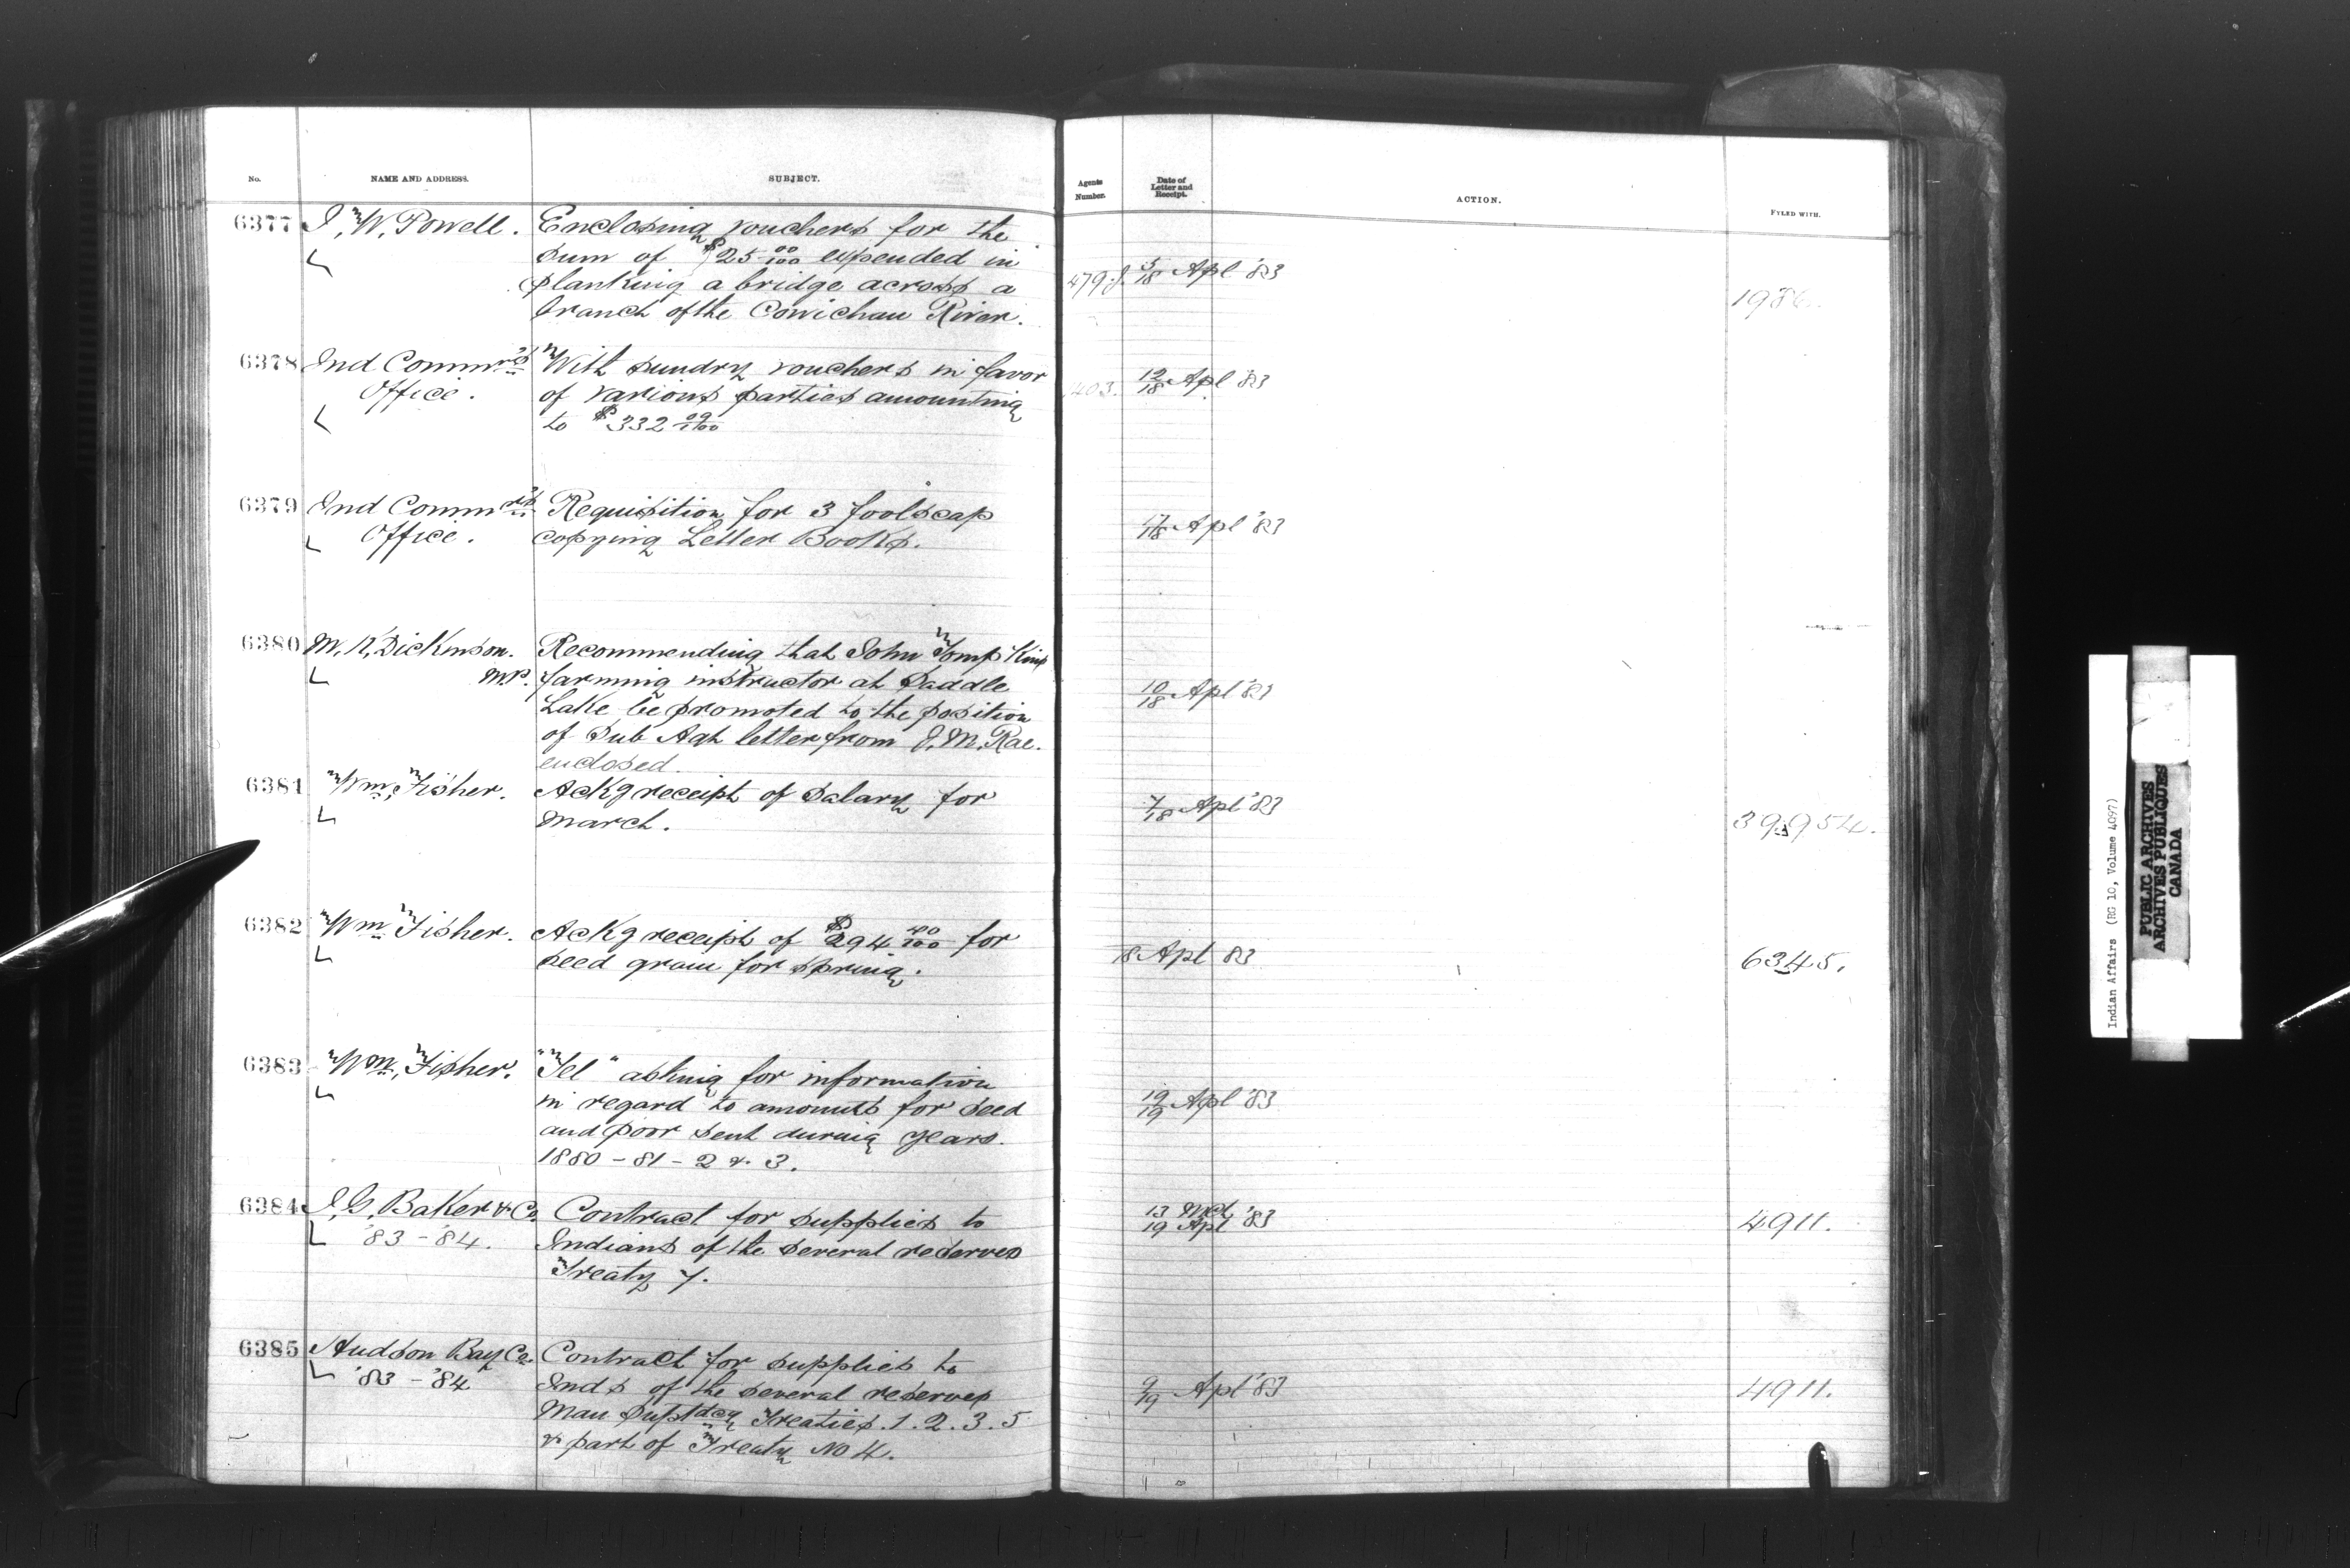 No. NAME AND ADDRESS. SUBJECT. Agents Number. Date of Letter and Receipt. ACTION. FYLED WITH.
6377 I. W. Powell. Enclosing vouchers for the
sum of $25 00/100 expended in
planking a bridge across a
branch of the Cowichan River.
479.J. 5/18 Apl '83 1986.
6378 Ind Commrs With sundry vouchers in favor
Office. of various parties amounting
to $332 09/100
403. 12/18 Apl 83
6379 Ind Commrs Requisition for 3 foolscap
Office. copying Letter Books.
17/18 Apl '83
6380 M. K. Dickinson. Recommending that John Tompkins
M.P. farming instructor at Saddle
Lake be promoted to the position
of Sub Agt letter from J. M. Rae.
enclosed.
10/18 Apl '83
6381 Wm, Fisher. Ackg receipt of salary for
March.
7/18 Apl '83 39,954.
6382 Wm Fisher. Ackg receipt of $294 40/100 for
seed grain for spring.
18 Apl 83 6345.
6383 Wm, Fisher. "Tel" asking for information
in regard to amounts for seed
and poor sent during years.
1880 - 81 - 2 & 3.
19/19 Apl '83
6384 I. G. Baker & Co. Contract for supplies to
'83 - '84. Indians of the several reserves
Treaty 7.
13 Mch
19 Apl '83 4911.
6385 Hudson Bay Co. Contract for supplies to
'83 - '84 Inds of the several reserves
Man Suptdcy Treaties. 1. 2. 3. 5
& part of Treaty No 4.
9/19 Apl '83 4911.
Indian Affairs (RG 10, Volume 4097)
PUBLIC ARCHIVES
ARCHIVES PUBLIQUES
CANADA